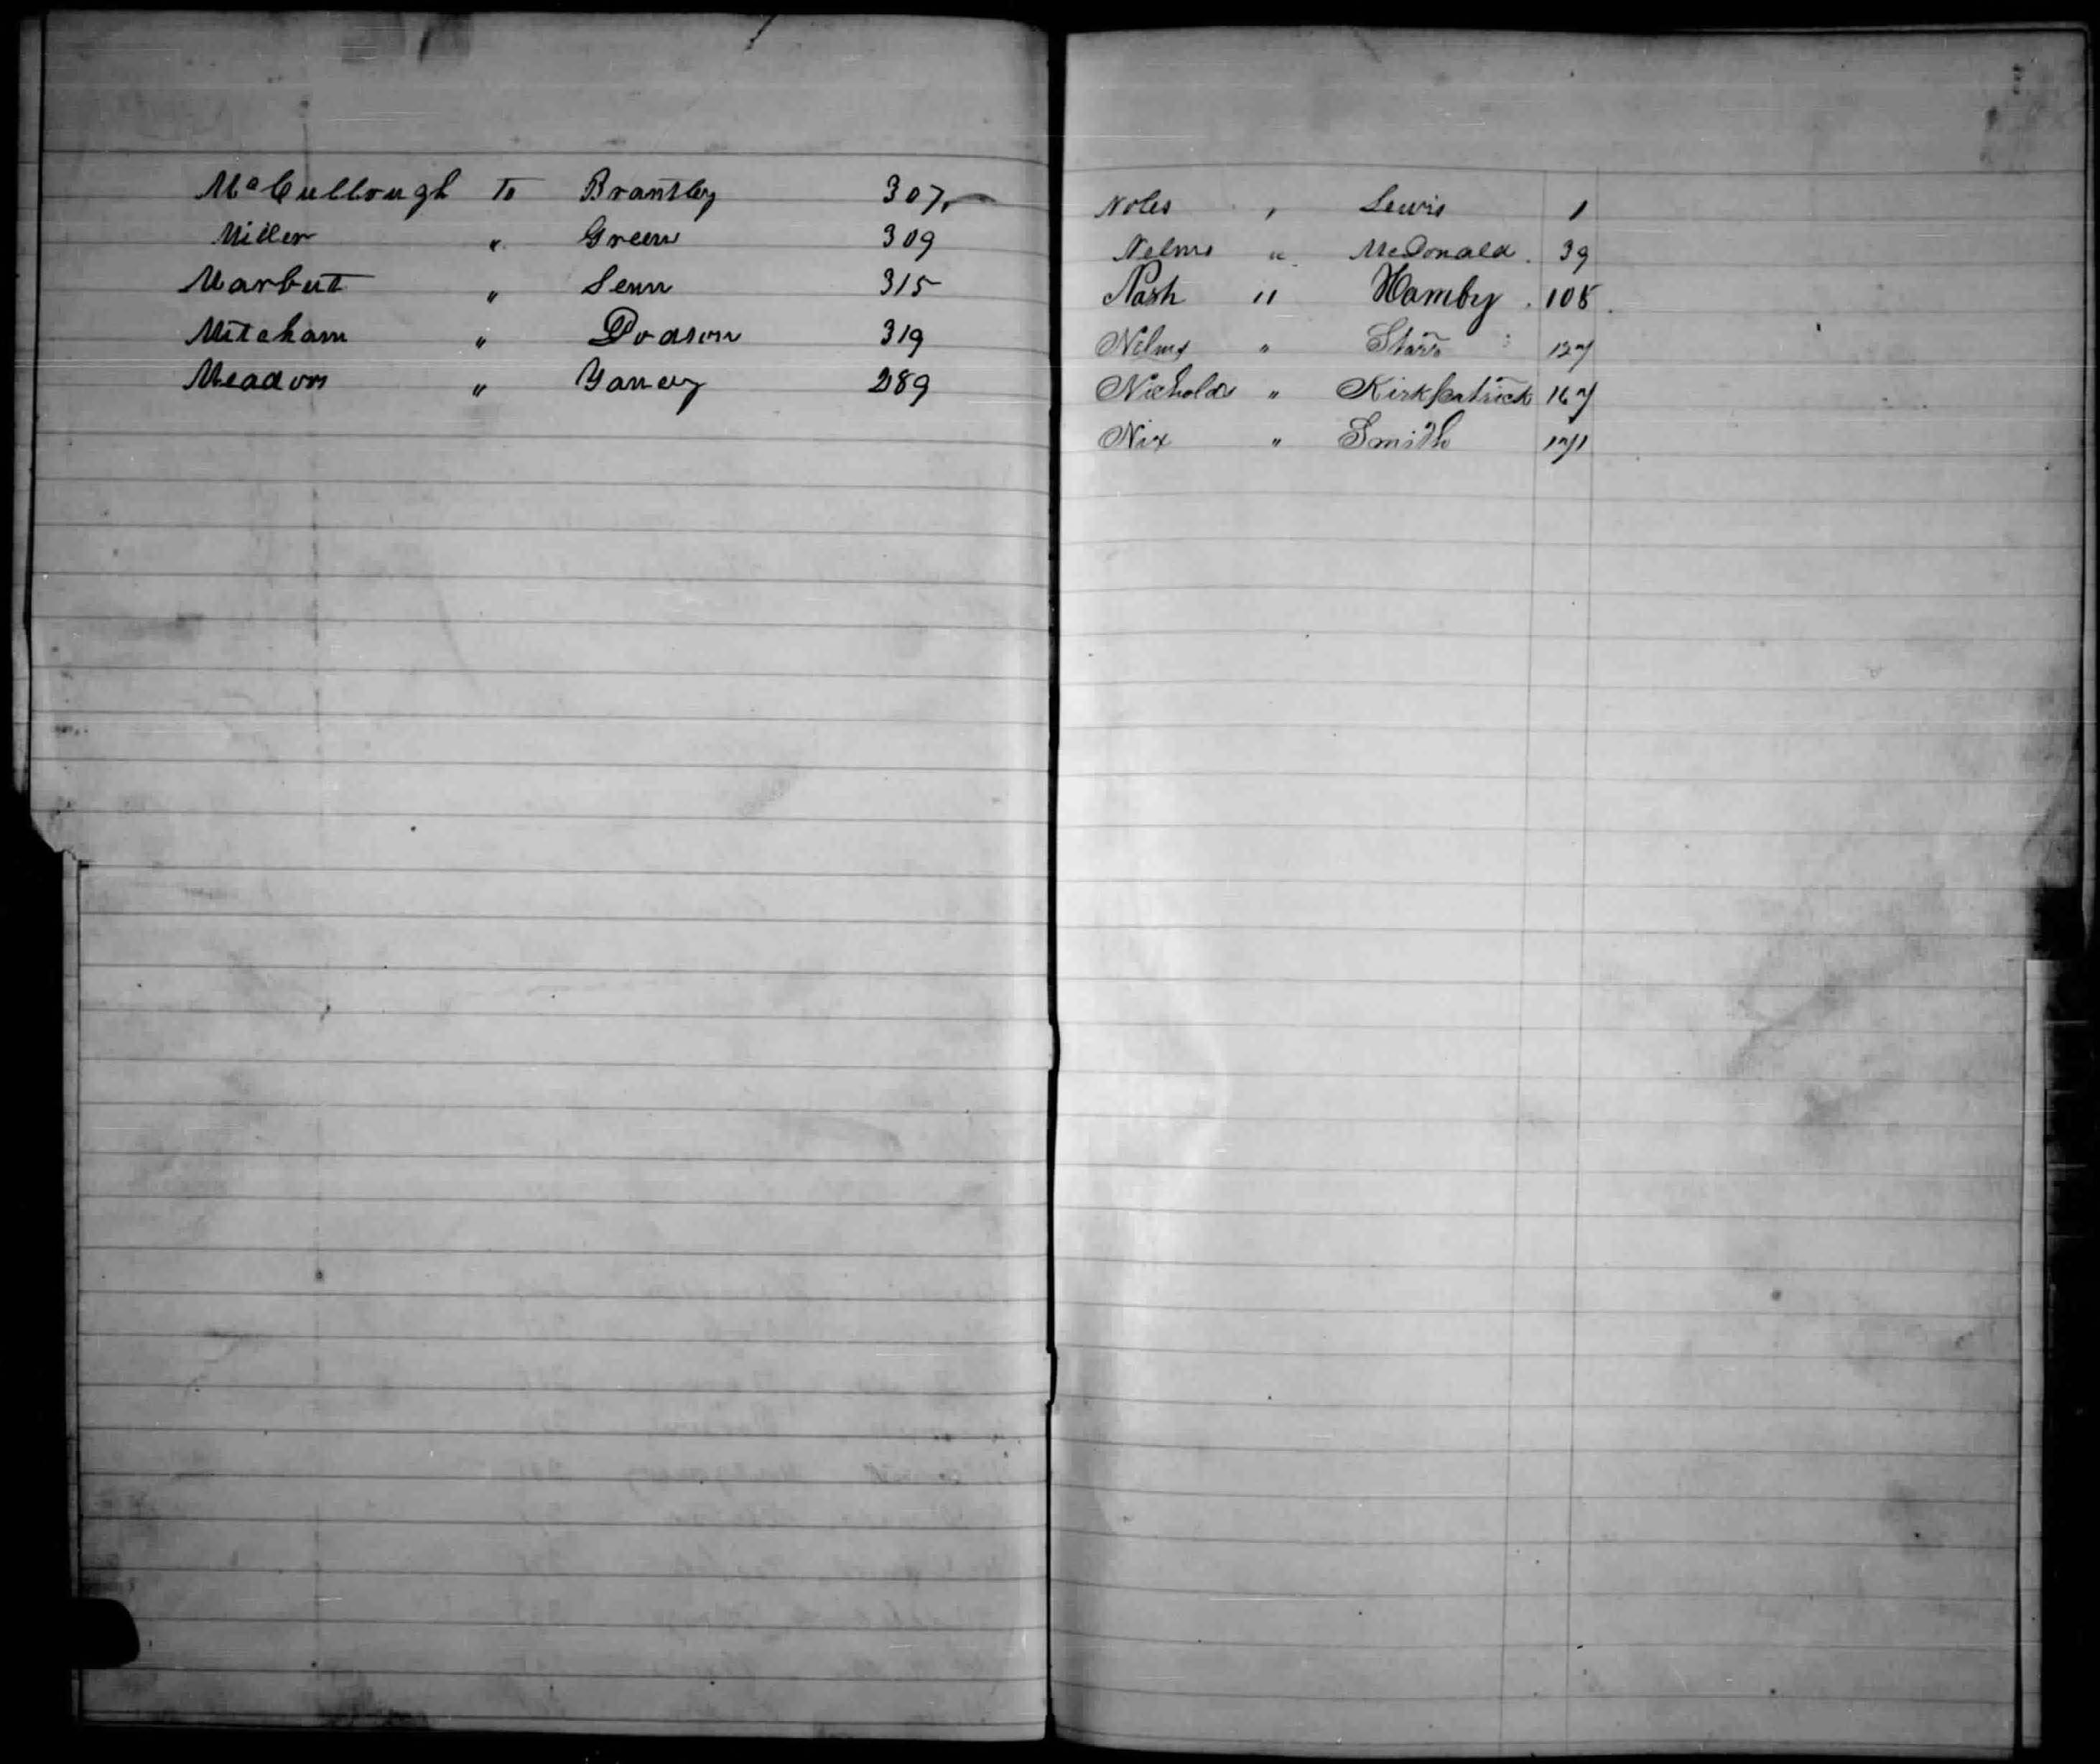 McCullough To Brantley 307
Miller " Green 309
Marbut " Senn 315
Mitcham " Dodson 319
Meadows " Yancy 289
Noles " Lewis 1
Nelms " McDonald. 39
Nash " Hamby. 108.
Nelms " Starr 127
Nichols " Kirkpatrick 167
Nix " Smith 171